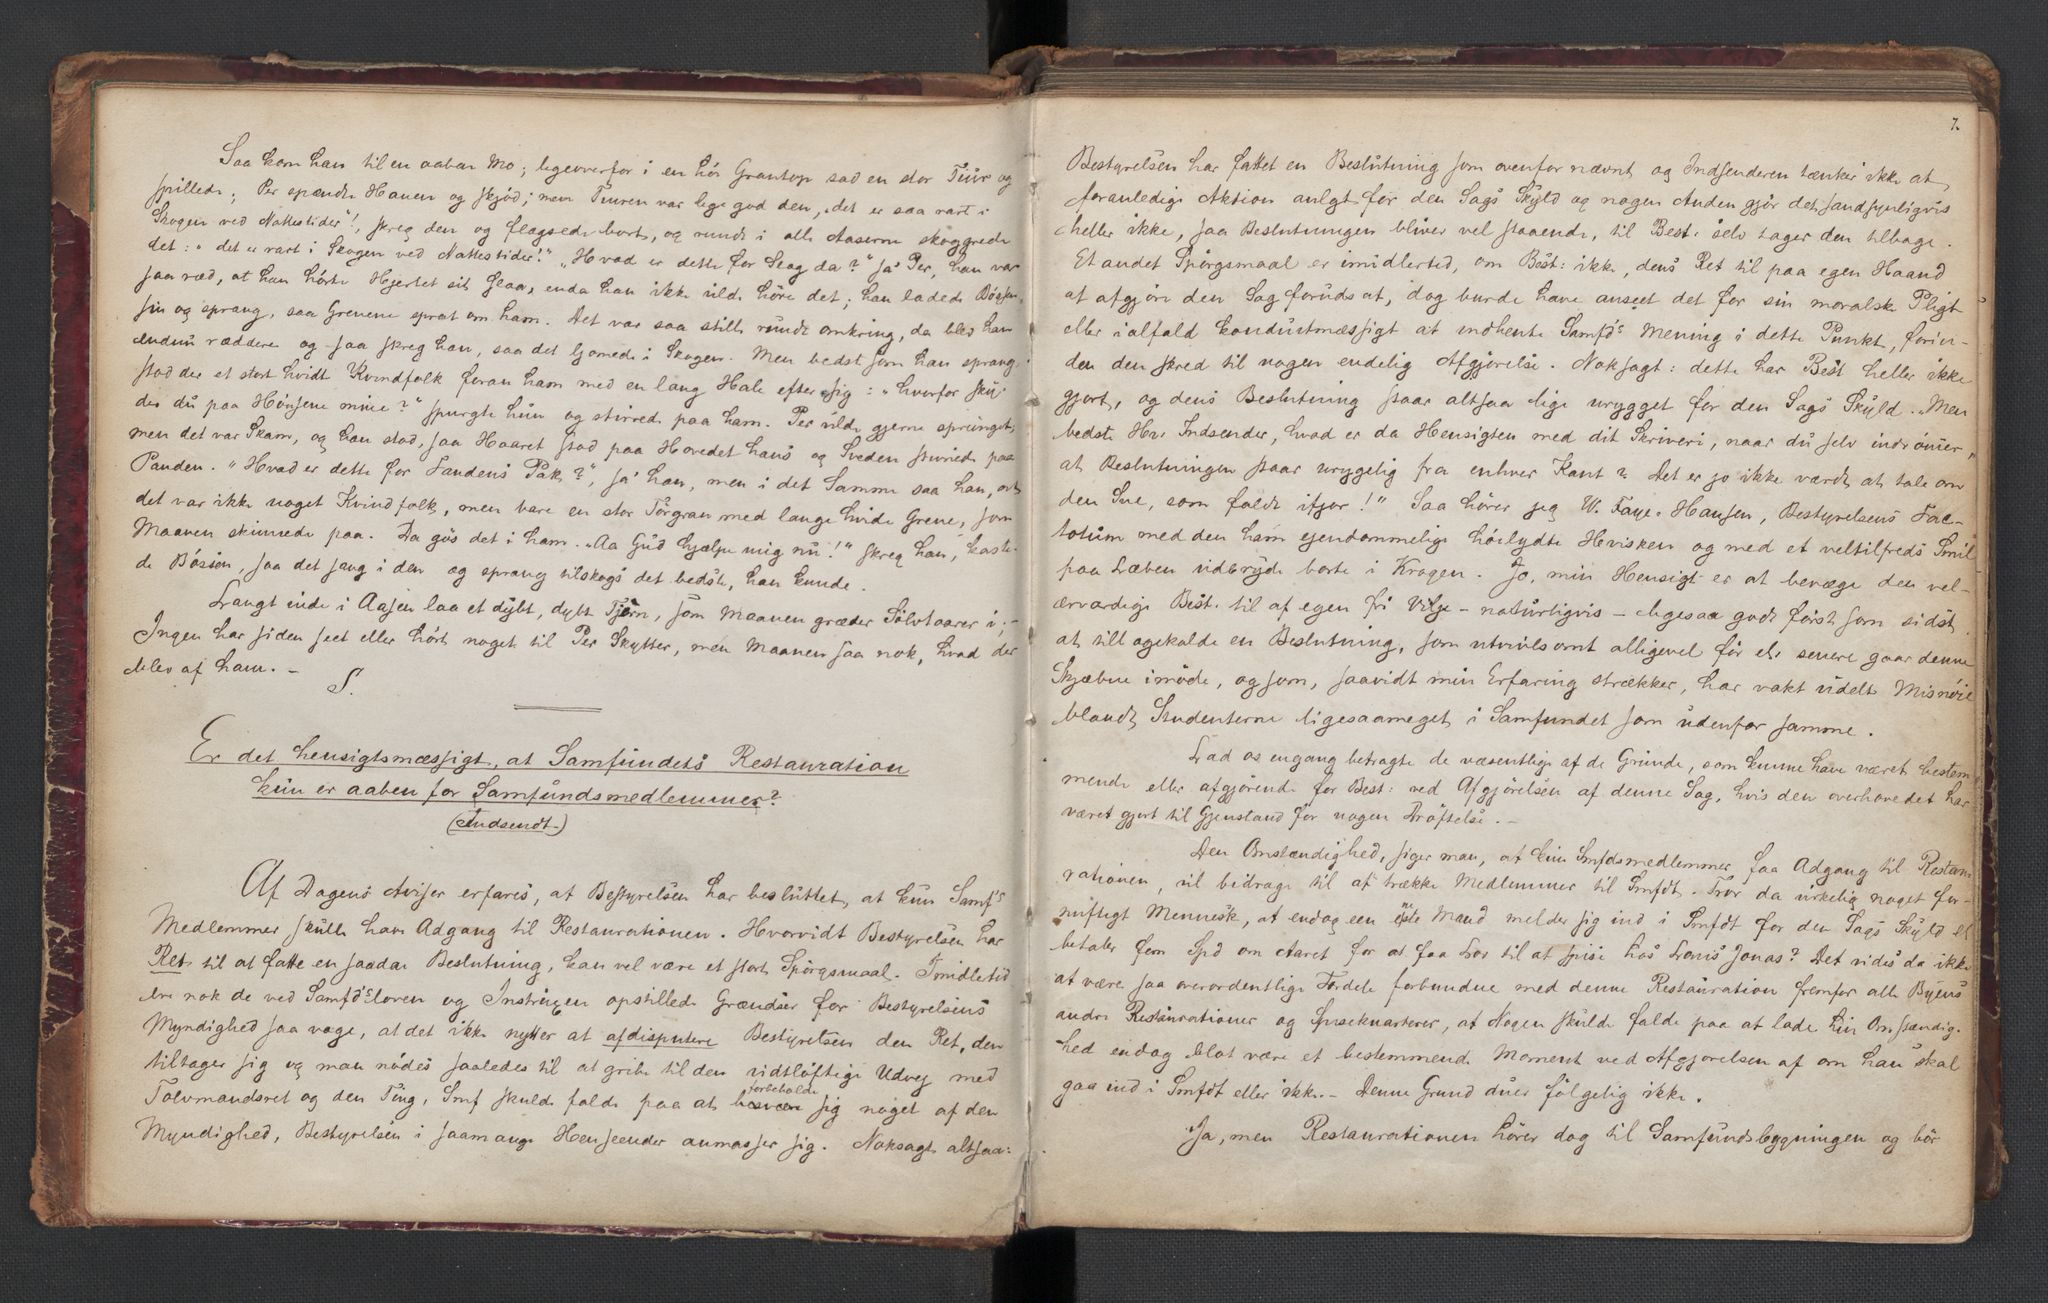 Saa kom han til en aaben Mo; ligeoverfor i en høi Grantop sad en stor Tiur og
spillede; Per spændte Hanen og skjød; men Tiuren var lige god den, „det er saa rart i
Skogen ved Nattestider“!, skreg den og flagsede bort, og rundt i alle Aaserne skoggrede
det: „det er rart i Skogen ved Nattestider!“ „Hvad er dette for Slag da?“ sa' Per, han var
saa ræd, at han hørte Hjertet sit slaa, enda han ikke vilde høre det; han ladede Børsen
sin og sprang, saa Grenene sprat om ham. Det var saa stille rundt omkring, da blev han
endnu ræddere og saa skreg han, saa det ljomede i Skogen. Men bedst som han sprang,
stod der et stort hvidt Kvindfolk foran ham med en lang Hale efter sig: „hvorfor sky-
der du paa Hønsene mine?“ spurgte hun og stirrede paa ham. Per vilde gjerne sprunget,
men det var Skam, og han stod, saa Haaret stod paa Hovedet hans og Sveden silrede paa
Panden. „Hvad er dette for Fandens Pak?“, sa' han, men i det Samme saa han, at
det var ikke noget Kvindfolk, men bare en stor Tørgran med lange hvide Grene, som
Maanen skinnede paa. Da gøs det i ham. „Aa Gud hjælpe mig nu!“ skreg han, kaste-
de Børsen, saa det sang i den og sprang tilskogs det bedste, han kunde.
Langt inde i Aasen laa et dybt, dybt Tjern, som Maanen græder Sølvtaarer i; —
Ingen har siden seet eller hørt noget til Per Skytter, men Maanen saa nok, hvad der
blev af ham. —
S.
Er det hensigtsmæssigt, at Samfundets Restauration
kun er aaben for Samfundsmedlemmer?
(Indsendt.)
Af Dagens Aviser erfares, at Bestyrelsen har besluttet, at kun Samf's
Medlemmer skulle have Adgang til Restaurationen. Hvorvidt Bestyrelsen har
Ret til at fatte en saadan Beslutning, kan vel være et stort Spørgsmaal. Imidlertid
ere nok de ved Samfd'sloven og Instruxen opstillede Grændser for Bestyrelsens
Myndighed saa vage, at det ikke nytter at afdisputere Bestyrelsen den Ret, den
tiltager sig og man nødes saaledes til at gribe til den vidtløftige Udvej med
Tolvmandsret og den Ting, Smf skulde falde paa at forbeholde sig noget af den
Myndighed, Bestyrelsen i saamange Henseender anmasser sig. Noksagt altsaa:
7.
Bestyrelsen har fattet en Beslutning som ovenfor nævnt og Indsenderen tænker ikke at
foranledige Aktion anlagt for den Sags Skyld og nogen Anden gjør det sandsynligvis
heller ikke, saa Beslutningen bliver vel staaende, til Best: selv tager den tilbage.
Et andet Spørgsmaal er imidlertid, om Best: ikke, dens Ret til paa egen Haand
at afgjøre den Sag forudsat, dog burde have anseet det for sin moralske Pligt
eller ialfald konduitmæssigt at indhente Samfd's Mening i dette Punkt, forin-
den den skred til nogen endelig Afgjørelse. Noksagt: dette har Best heller ikke
gjort, og dens Beslutning staar altsaa lige urygget for den Sags Skyld. „Men
bedste Hr. Indsender, hvad er da Hensigten med dit Skriveri, naar du selv indrømmer,
at Beslutningen staar urygelig fra enhver Kant? Det er jo ikke værdt at tale om
den Sne, som faldt ifjor!“ Saa hører jeg W. Faye-Hansen, Bestyrelsens Fac-
totum med den ham ejendommelige høilydte Hvisken og med et veltilfreds Smil
paa Læben udbryde borte i Krogen. Jo, min Hensigt er at bevæge den vel-
ærværdige Best. til af egen fri Vilje — naturligvis — ligesaa godt først som sidst
at tilbagekalde en Beslutning, som utvivlsomt alligevel før elr senere gaar denne
Skjæbne imøde, og som, saavidt min Erfaring strækker, har vakt udelt Misnøie
blandt Studenterne ligesaameget i Samfundet som udenfor samme.
Lad os engang betragte de væsentlige af de Grunde, som kunne have været bestem
mende eller afgjørende for Best: ved Afgjørelsen af denne Sag, hvis den overhovedet har
været gjort til Gjenstand for nogen Drøftelse. —
Den Omstændighed, siger man, at kun Smfdsmedlemmer faa Adgang til Restau
rationen, vil bidrage til at trække Medlemmer til Smfdt. Tror da virkelig noget for-
nuftigt Menneske, at endog een eneste Mand melder sig ind i Smfdt for den Sags Skyld el
betaler fem Spd om Aaret for at faa Lov til at spise hos Louis Jonas? Det vides da ikke
at være saa overordentlige Fordele forbundne med denne Restauration fremfor alle Byens
andre Restaurationer og Spisekvarterer, at Nogen skulde falde paa at lade hin Omstændig-
hed endog blot være et bestemmende Moment ved Afgjørelsen af om han skal
gaa ind i Smfdt eller ikke. — Denne Grund duer følgelig ikke.
Ja, men Restaurationen hører dog til Samfundsbygningen og bør